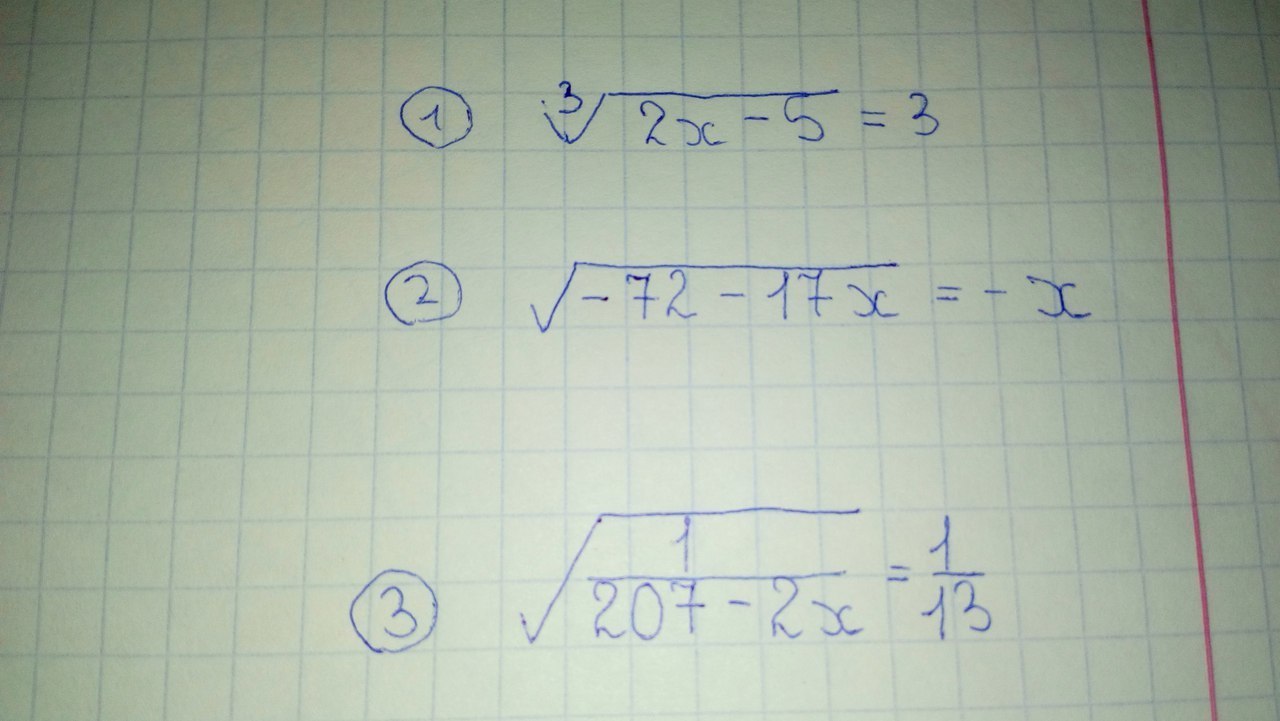 ① ∛(2x - 5) = 3
② √(-72 - 17x) = -x
③ √(1/(207 - 2x)) = 1/13